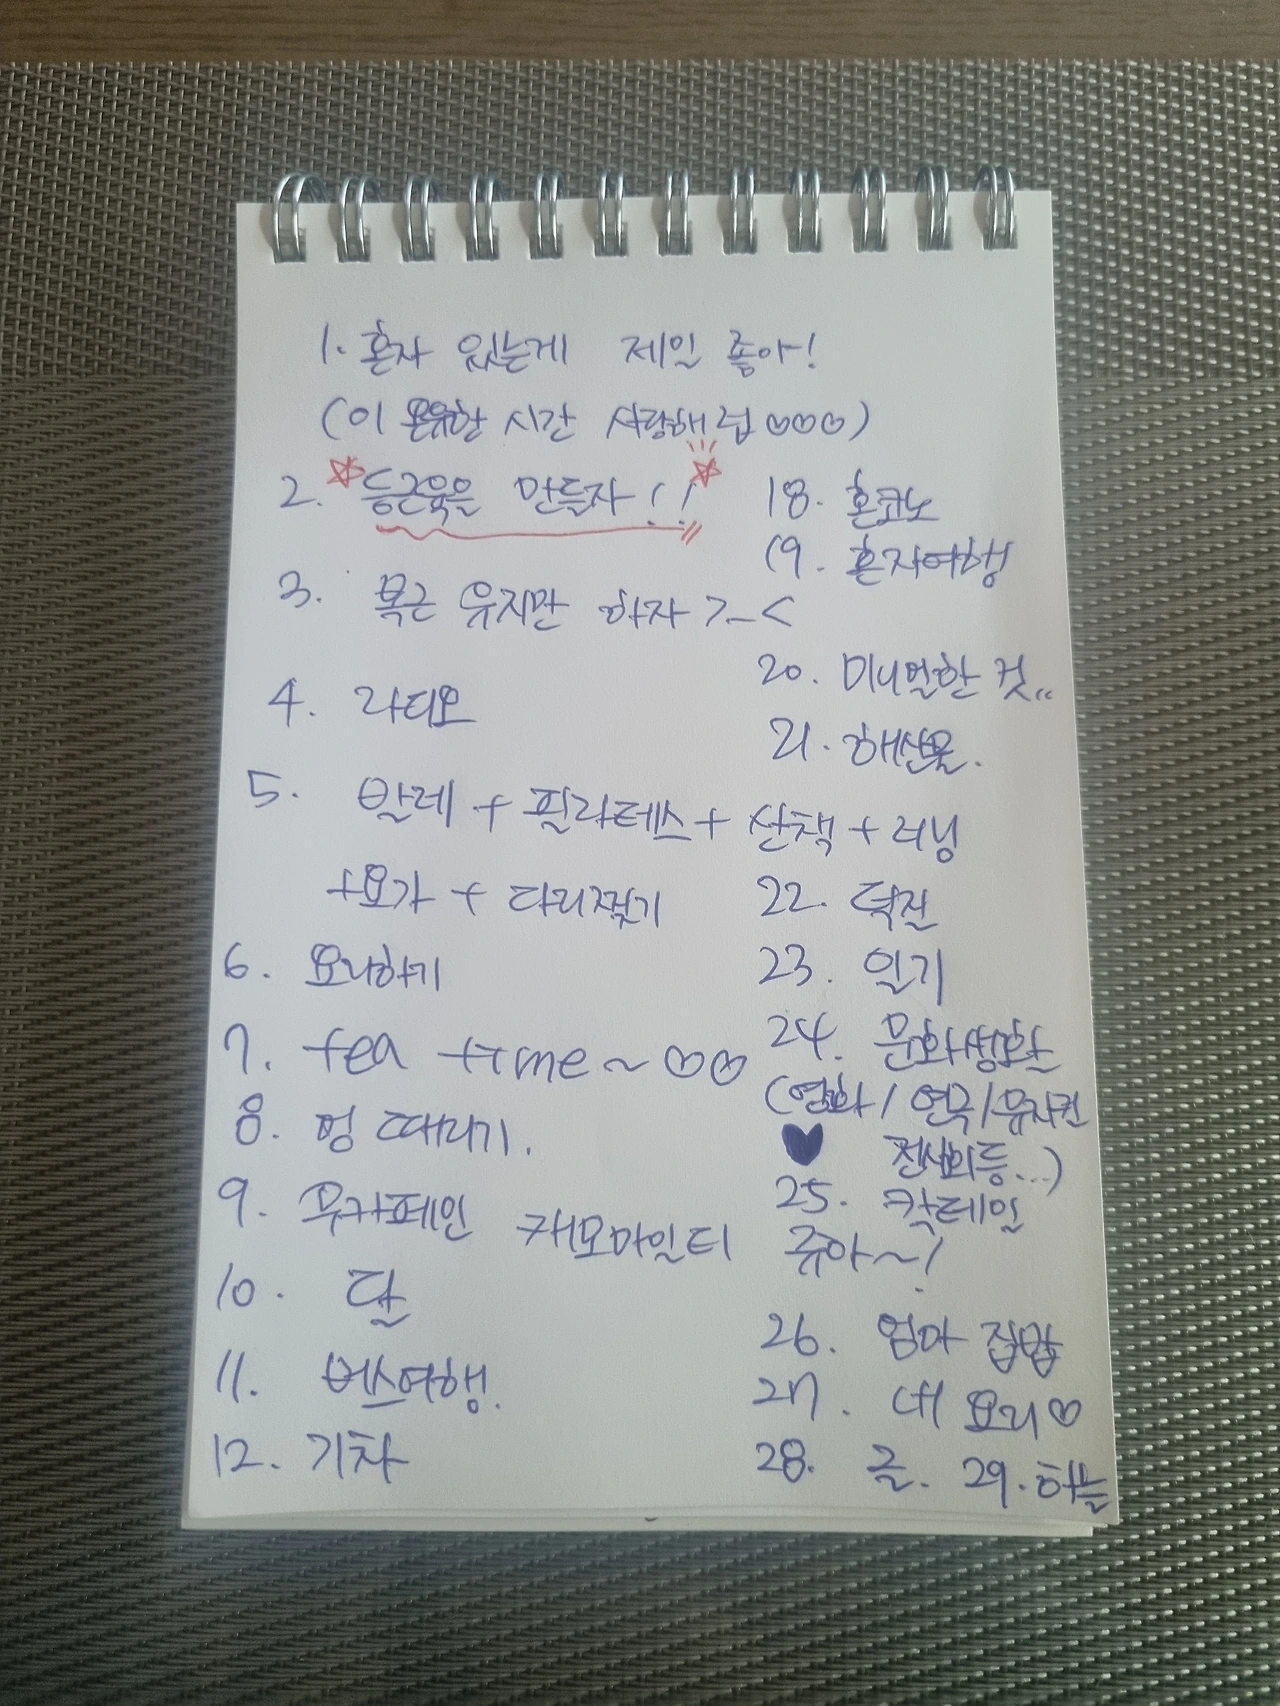 1. 혼자 있는게 제일 좋아!
(이 온유한 시간 사랑해 럽 ♡♡♡)
2. ☆등근육을 만들자!!☆
3. 복근 유지만 하자 >_<
4. 라디오
5. 발레 + 필라테스 + 산책 + 러닝
+요가 + 다리찢기
6. 요리하기
7. tea time~ ♡♡
8. 멍 때리기.
9. 무카페인 캐모마일티
10. 달
11. 버스여행.
12. 기차
18. 혼코노
19. 혼자여행
20. 미니멀한 것..
21. 해산물.
22. 덕질
23. 일기
24. 문화생활
(영화/연극/뮤지컬
♥ 전시회등...)
25. 칵테일
쥬아~!
26. 엄마 집밥
27. 내 요리♡
28. 글. 29. 하늘